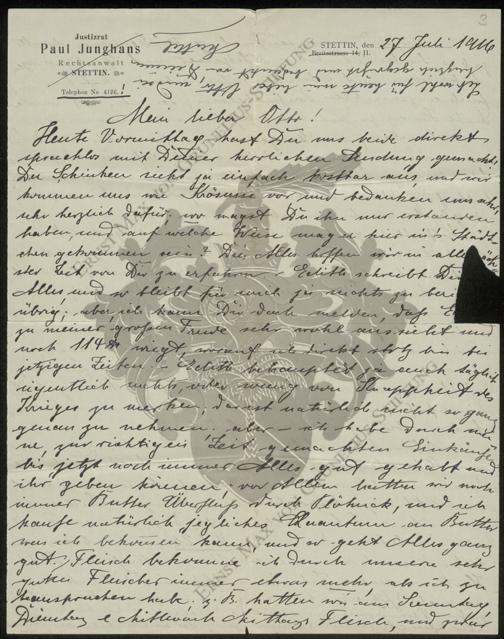 Justizrat
Paul Junghans
Rechtsanwalt
STETTIN.
Telephon No 4126.
STETTIN, den 27 Juli 1916
Breitestrasse 14, II.
Mein lieber Otto!
Heute Vormittag hast Du uns beide direkt
sprachlos mit Deiner herrlichen Sendung gemacht.
Der Schinken sieht ja einfach kostbar aus, und wir
kommen uns wie Krösusse vor und bedanken uns also
sehr herzlich dafür, wo magst Du ihn nur erstanden
haben und auf welche Weise mag er hier in's Städt
chen gekommen sein? Dies Alles hoffen wir in aller
ster Zeit von Dir zu erfahren. Edith schreibt Dir
Alles und so bleibt für mich ja nichts zu
übrig; aber ich kann Dir doch melden, daß E
zu meiner großen Freude sehr wohl aussieht und
noch 114 wiegt, worauf ich direkt stolz bin bei
jetzigen Zeiten. Edith behauptet ja auch täglich
eigentlich nichts oder wenig von Knappheit des
Krieges zu merken, das ist natürlich nicht so ganz
genau zu nehmen, aber ich habe durch mei
ne, zur richtigen Zeit gemachten Einkäufe
bis jetzt noch immer Alles gut gehabt und
ihr geben können. vor Allem hatten wir noch
immer Butter Überfluß durch und ich
kaufe natürlich jegliches Quantum an Butter
was ich bekommen kann, und so geht Alles ganz
gut. Fleisch bekomme ich durch unsere sehr
guten Fleischer immer etwas mehr, als ich zu
beanspruchen habe; z. B. hatten wir am Sonntag
Dienstag & Mittwoch Mittags Fleisch, und zwar